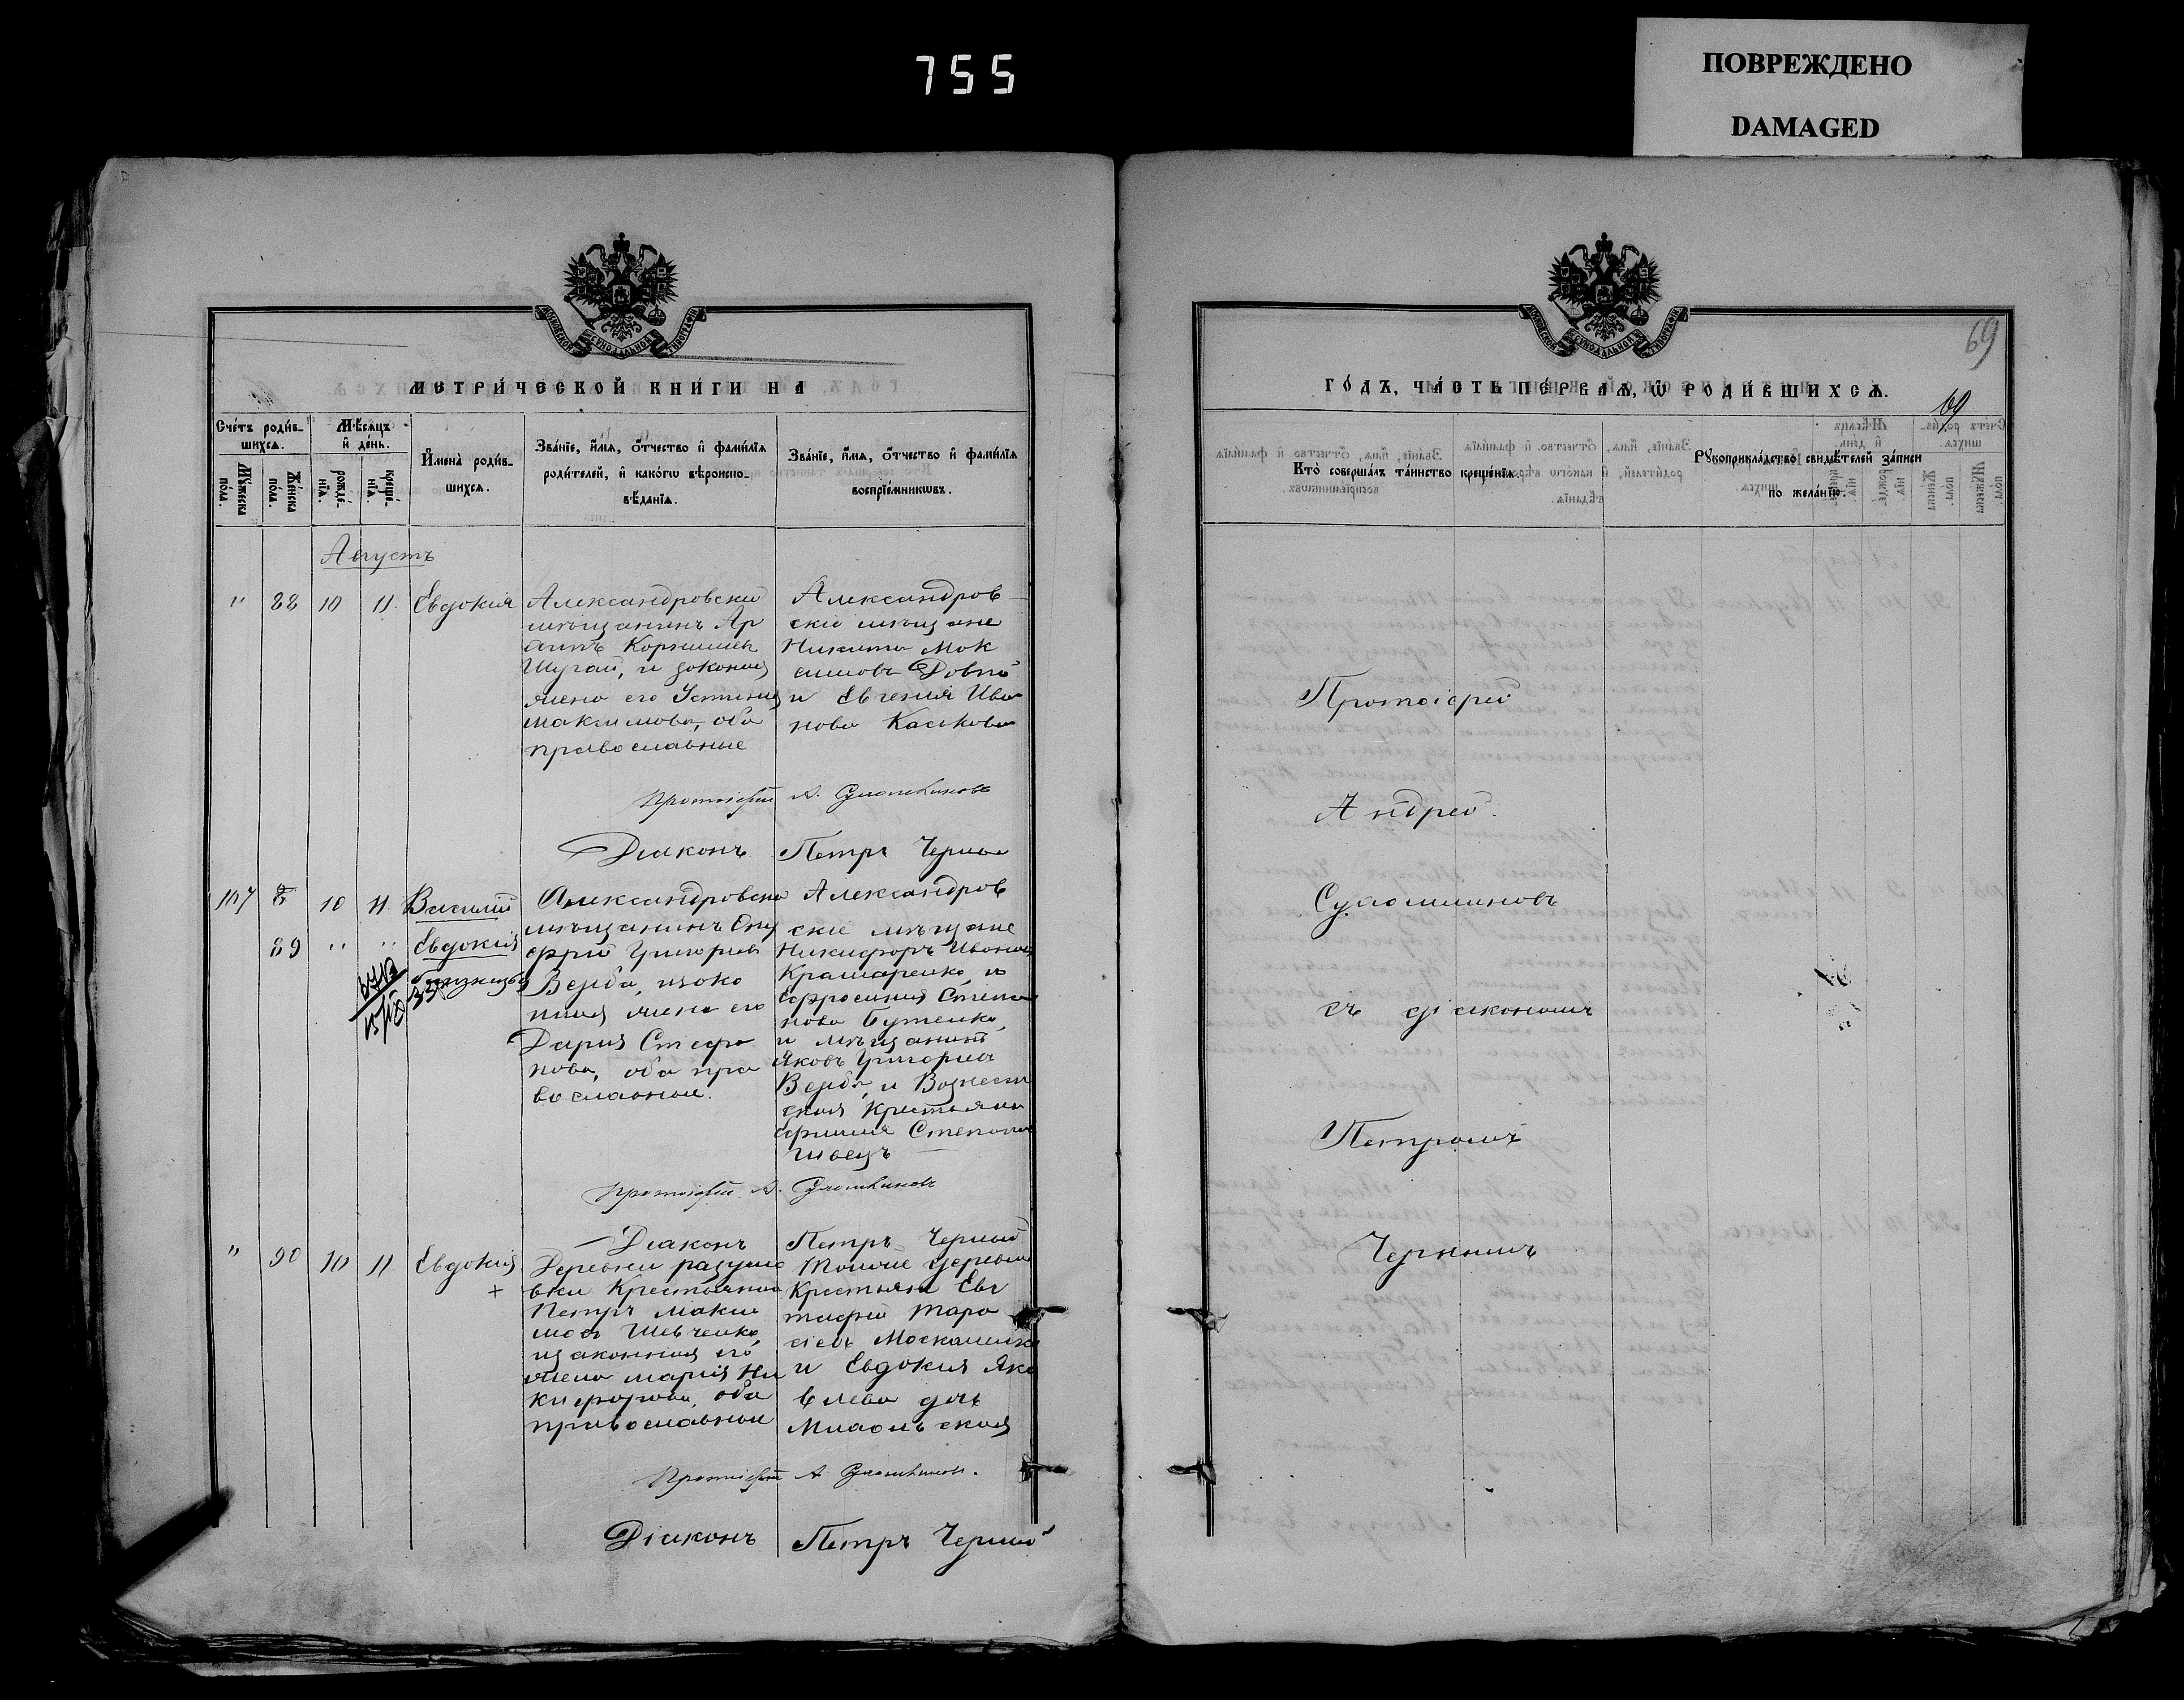 755
ПОВРЕЖДЕНО
DAMAGED
МЕТРИЧЕСКОЙ КНИГИ НА
Счетъ родив-
шихся.
Мужеска пола.
Женска пола.
Мѣсяцъ и день.
рожде-
нія.
креще-
нія.
Имена родив-
шихся.
Званіе, имя, отчество и фамилія
родителей, и какого вѣроиспо-
вѣданія.
Званіе, имя, отчество и фамилія
воспріемниковъ.
Августъ
" 88 10 11. Евдокия
Александровский
мѣщанинъ
Шугай, и законная
жена его Устиния
Максимова, оба
православные
Александров
скіе мѣщане
Никита Мак
симовъ Довгий
и Евгения Ива
нова Каськова
Протоіерей А.
Діаконъ Петръ Черный
107 10 11. Василій
89 " " Евдокия
близнецы
Александровский
мѣщанинъ Ону
фрій Григорьев
Верба, и зако
нная жена его
Дария Стефа
нова, оба пра
вославные.
Александров
скіе мѣщане
Никифоръ Иванов
Крамаренко, и
Ефросиния Степа
нова Бутенко,
и мѣщанинъ
Яковъ Григорьевъ
Верба, и Вознесен
ская крестьянка
Степанова
Швецъ
Протоіерей А.
Діаконъ Петръ Черный
" 90 10 11. Евдокия
+
Деревни Разумо
вки Крестьянин
Петръ Макси
мовъ Шевченко,
и законная его
жена Мария Ни
кифорова, оба
православные
Тойже деревни
Крестьяне Евс
тафий Тара
сіевъ Москаленко
и Евдокия Яко
влева дочь
Протоіерей А.
Діаконъ Петръ Черный
69
69
ГОДЪ, ЧАСТЬ ПЕРВАЯ, О РОДИВШИХСЯ.
Кто совершалъ таинство крещенія.
Рукоприкладство свидѣтелей записи
по желанію.
Протоіерей
Андрей.
съ діакономъ
Петромъ
Чернымъ